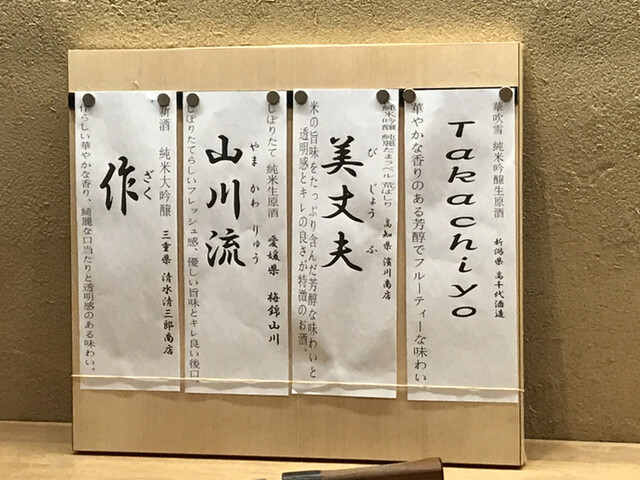 華吹雪 純米吟醸生原酒
新潟県 高千代酒造
Takachiyo
華やかな香りのある芳醇でフルーティーな味わい。
純米吟醸 純麗たまラベル 荒ばしり
高知県 濵川商店
美丈夫
び じょう ふ
米の旨味をたっぷり含んだ芳醇な味わいと
透明感とキレの良さが特徴のお酒。
しぼりたて 純米生原酒
愛媛県 梅錦山川
山川流
やま かわ りゅう
しぼりたてらしいフレッシュ感、優しい旨味とキレ良い後口。
新酒 純米大吟醸
三重県 清水清三郎商店
作
ざく
らしい華やかな香り、綺麗な口当たりと透明感のある味わい。